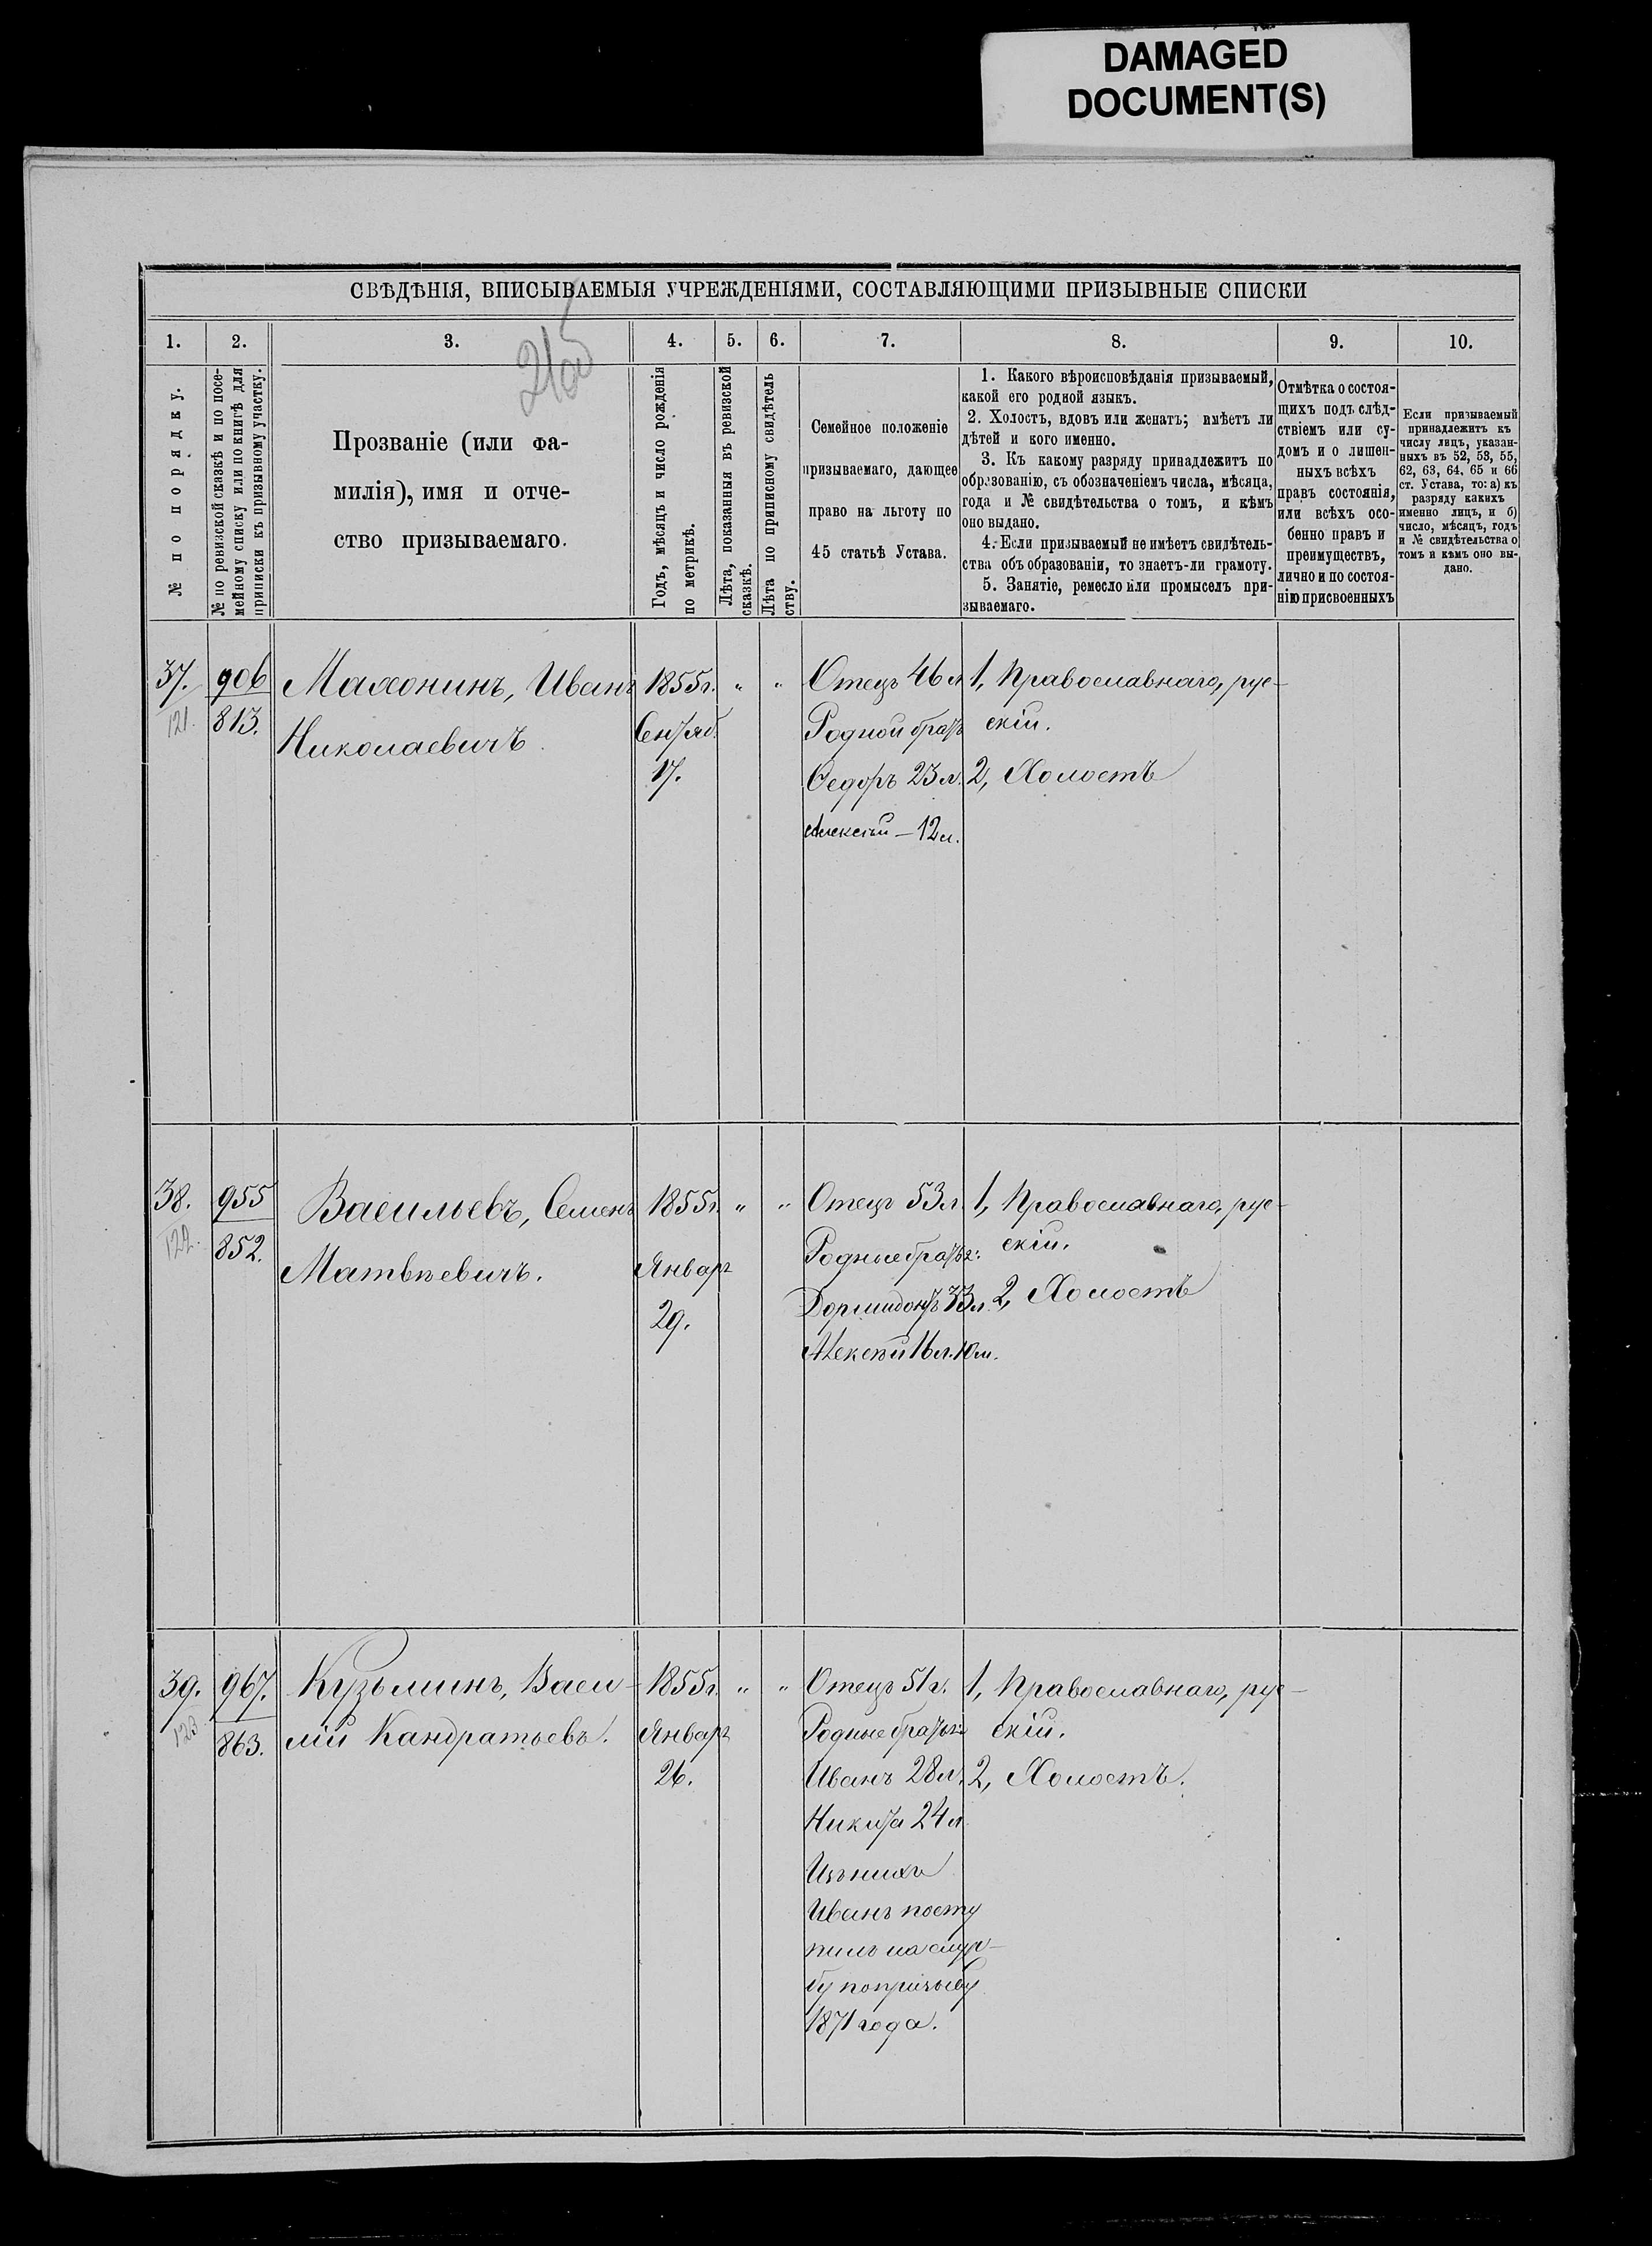 DAMAGED
DOCUMENT(S)
СВѢДѢНІЯ, ВПИСЫВАЕМЫЯ УЧРЕЖДЕНІЯМИ, СОСТАВЛЯЮЩИМИ ПРИЗЫВНЫЕ СПИСКИ
1. 2. 3. 4. 5. 6. 7. 8. 9. 10.
№ по порядку.
№ по ревизской сказкѣ и по посе-
мейному списку или по книгѣ для
приписки къ призывному участку.
Прозваніе (или фа-
милія), имя и отче-
ство призываемаго.
Годъ, мѣсяцъ и число рожденія
по метрикѣ.
Лѣта, показанныя въ ревизской
сказкѣ.
Лѣта по приписному свидѣтель
ству.
Семейное положеніе
призываемаго, дающее
право на льготу по
45 статьѣ Устава.
1. Какого вѣроисповѣданія призываемый,
какой его родной языкъ.
2. Холостъ, вдовъ или женатъ; имѣетъ ли
дѣтей и кого именно.
3. Къ какому разряду принадлежитъ по
образованію, съ обозначеніемъ числа, мѣсяца,
года и № свидѣтельства о томъ, и кѣмъ
оно выдано.
4. Если призываемый не имѣетъ свидѣтель-
ства объ образованіи, то знаетъ-ли грамоту.
5. Занятіе, ремесло или промыселъ при-
зываемаго.
Отмѣтка о состоя-
щихъ подъ слѣд-
ствіемъ или су-
домъ и о лишен-
ныхъ всѣхъ
правъ состоянія,
или всѣхъ осо-
бенно правъ и
преимуществъ,
лично и по состоя-
нію присвоенныхъ
Если призываемый
принадлежитъ къ
числу лицъ, указан-
ныхъ въ 52, 53, 55,
62, 63, 64, 65 и 66
ст. Устава, то: а) къ
разряду какихъ
именно лицъ, и б)
число, мѣсяцъ, годъ
и № свидѣтельства о
томъ и кѣмъ оно вы-
дано.
37.
121.
906
813.
Махонинъ, Иванъ
Николаевичъ.
1855г.
Сентяб.
17.
" "
Отецъ 46 л
Родной братъ
Ѳедоръ 23 л.
Алексѣй — 12 л.
1, Православнаго, рус-
скій.
2, Холостъ
38.
122.
955
852.
Васильевъ, Семенъ
Матвѣевичъ.
1855г.
Январ
29.
" "
Отецъ 53 л.
Родные братья:
Дормидонтъ 33 л.
Алексѣй 16 л. 10 м.
1, Православнаго, рус-
скій.
2, Холостъ
39.
123
967.
863.
Кузьминъ, Васи-
лій Кандратьевъ.
1855г.
Январ
26.
" "
Отецъ 51 г.
Родные братья
Иванъ 28 л.
Никита 24 л
Изъ нихъ
Иванъ посту
пилъ на служ-
бу по призыву
1871 года.
1, Православнаго, рус-
скій.
2, Холостъ.